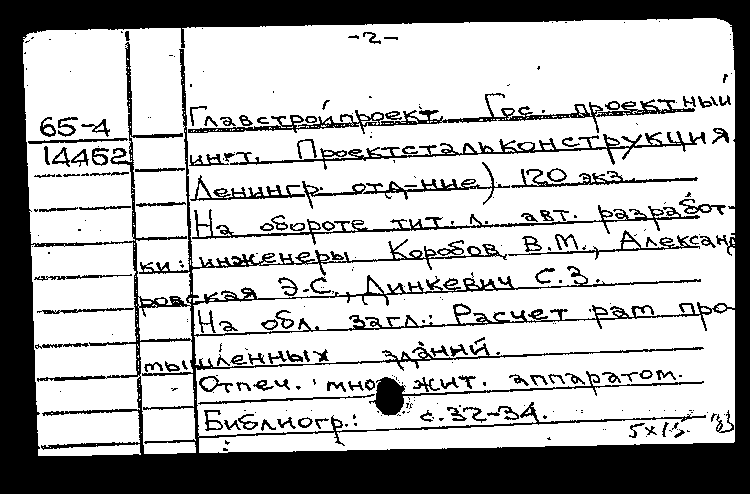 -2-
65-4
14462
Главстройпроект. Гос. проектный
инст. Проектстальконструкция.
Ленингр. отд-ние). 120 экз.
На обороте тит. л. авт. разработ-
ки: инженеры Коробов В.М., Александ
ровская Э.С., Динкевич С.З.
На обл. загл.: Расчет рам про-
мышленных зданий.
Отпеч. множит. аппаратом.
Библиогр.: с.32-34.
5х15